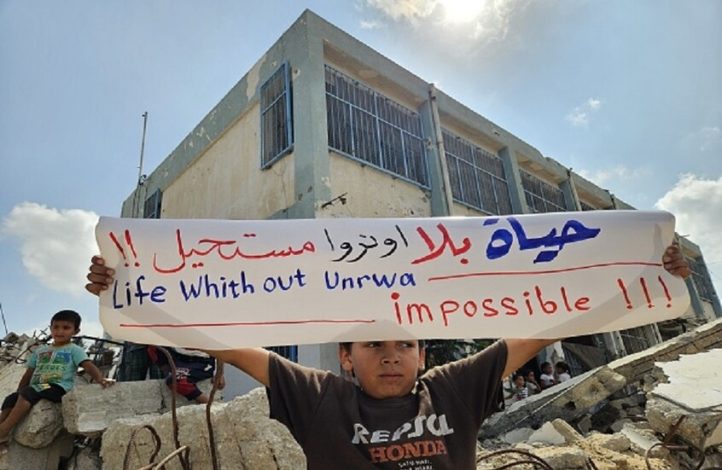 حياة بلا اونروا مستحيل !!
Life Whith out Unrwa
impossible !!!
REPSOL
HONDA